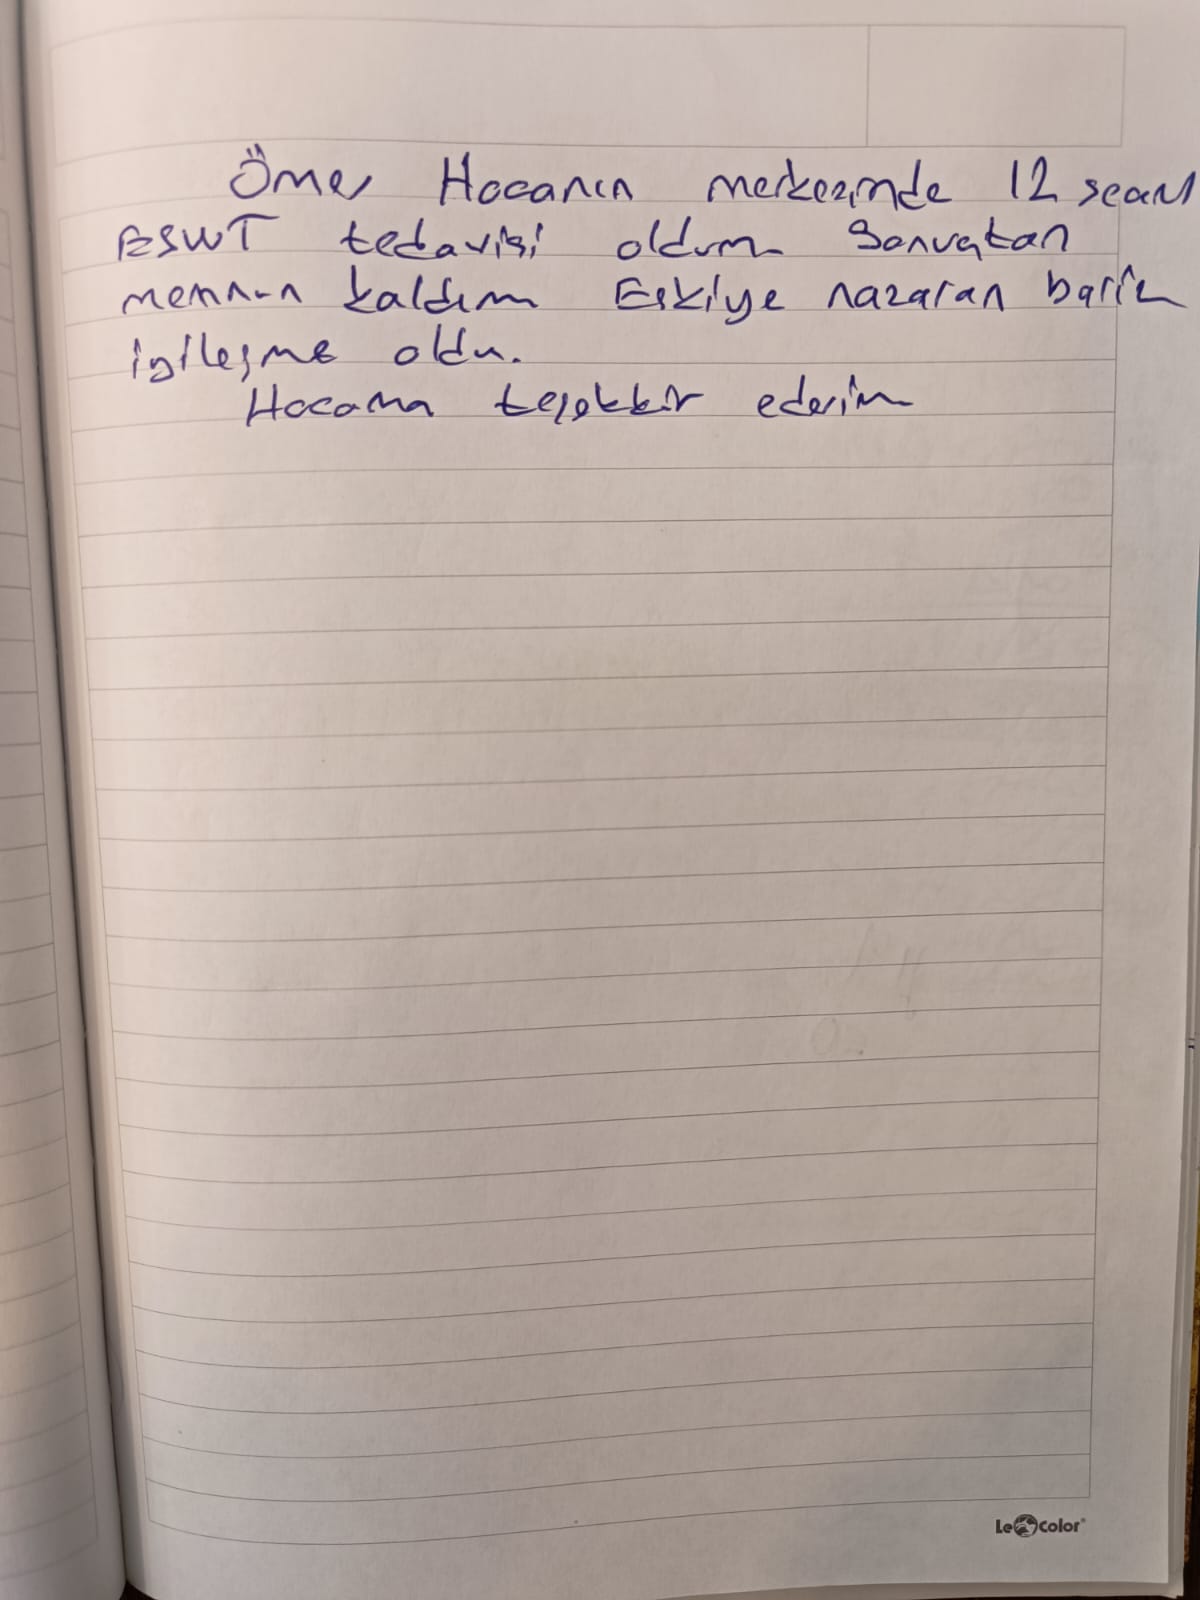 Ömer Hocanın merkezinde 12 seans
ESWT tedavisi oldum Sonuçtan
memnun kaldım Eskiye nazaran bariz
iyileşme oldu.
Hocama teşekkür ederim
LeColor